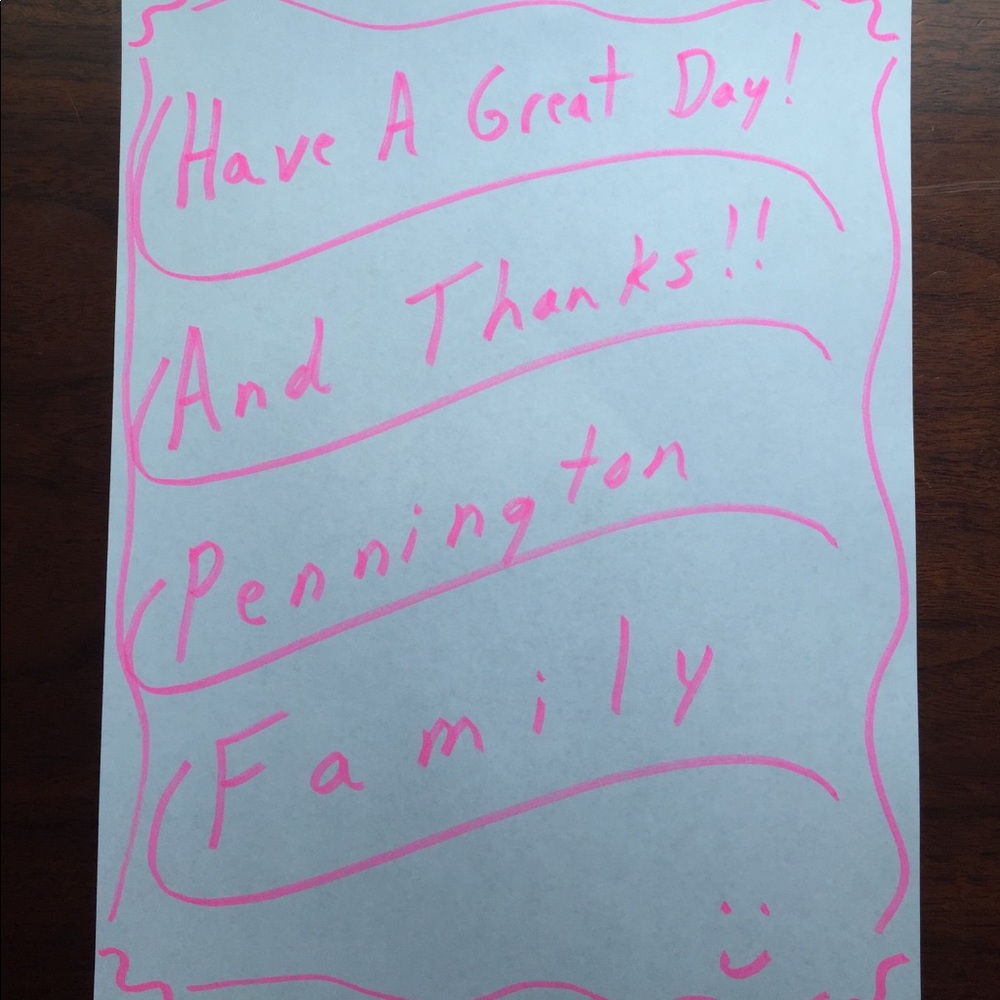 Have A Great Day!
And Thanks!!
Pennington
Family